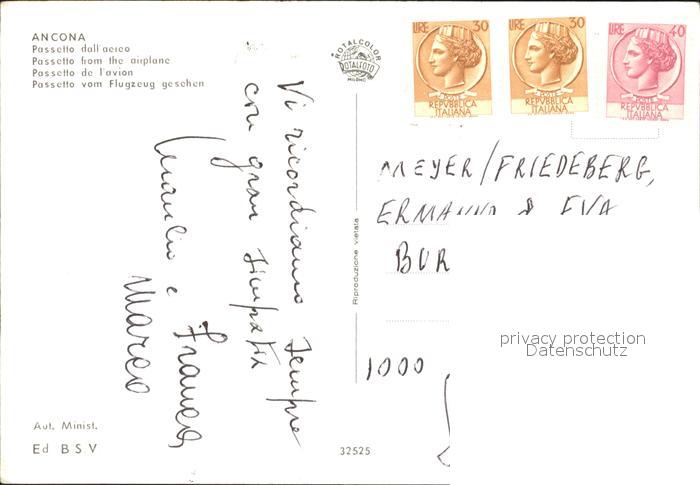 ANCONA
Passetto dall'aereo
Passetto from the airplane
Passetto de l'avion
Passetto vom Flugzeug gesehen
ROTALCOLOR
ROTALFOTO
MILANO
LIRE 30
POSTE
REPVBBLICA
ITALIANA
LIRE 30
POSTE
REPVBBLICA
ITALIANA
LIRE 40
POSTE
REPVBBLICA
ITALIANA
Vi ricordiamo sempre
con gran simpatia
Manlio e Franca
Marco
Riproduzione vietata
MEYER/FRIEDEBERG,
ERMANNO & EVA
BUR
1000
privacy protection
Datenschutz
Aut. Minist.
Ed B S V
32525